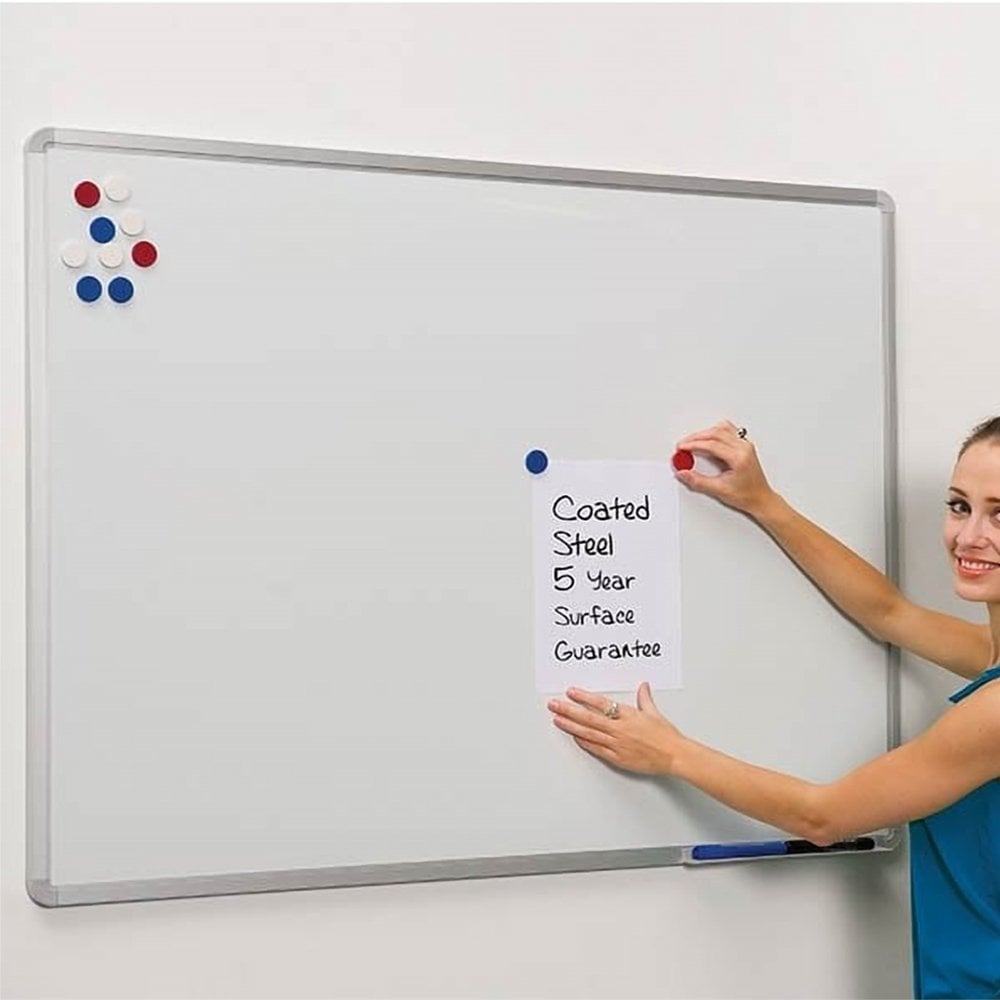 Coated
Steel
5 Year
Surface
Guarantee